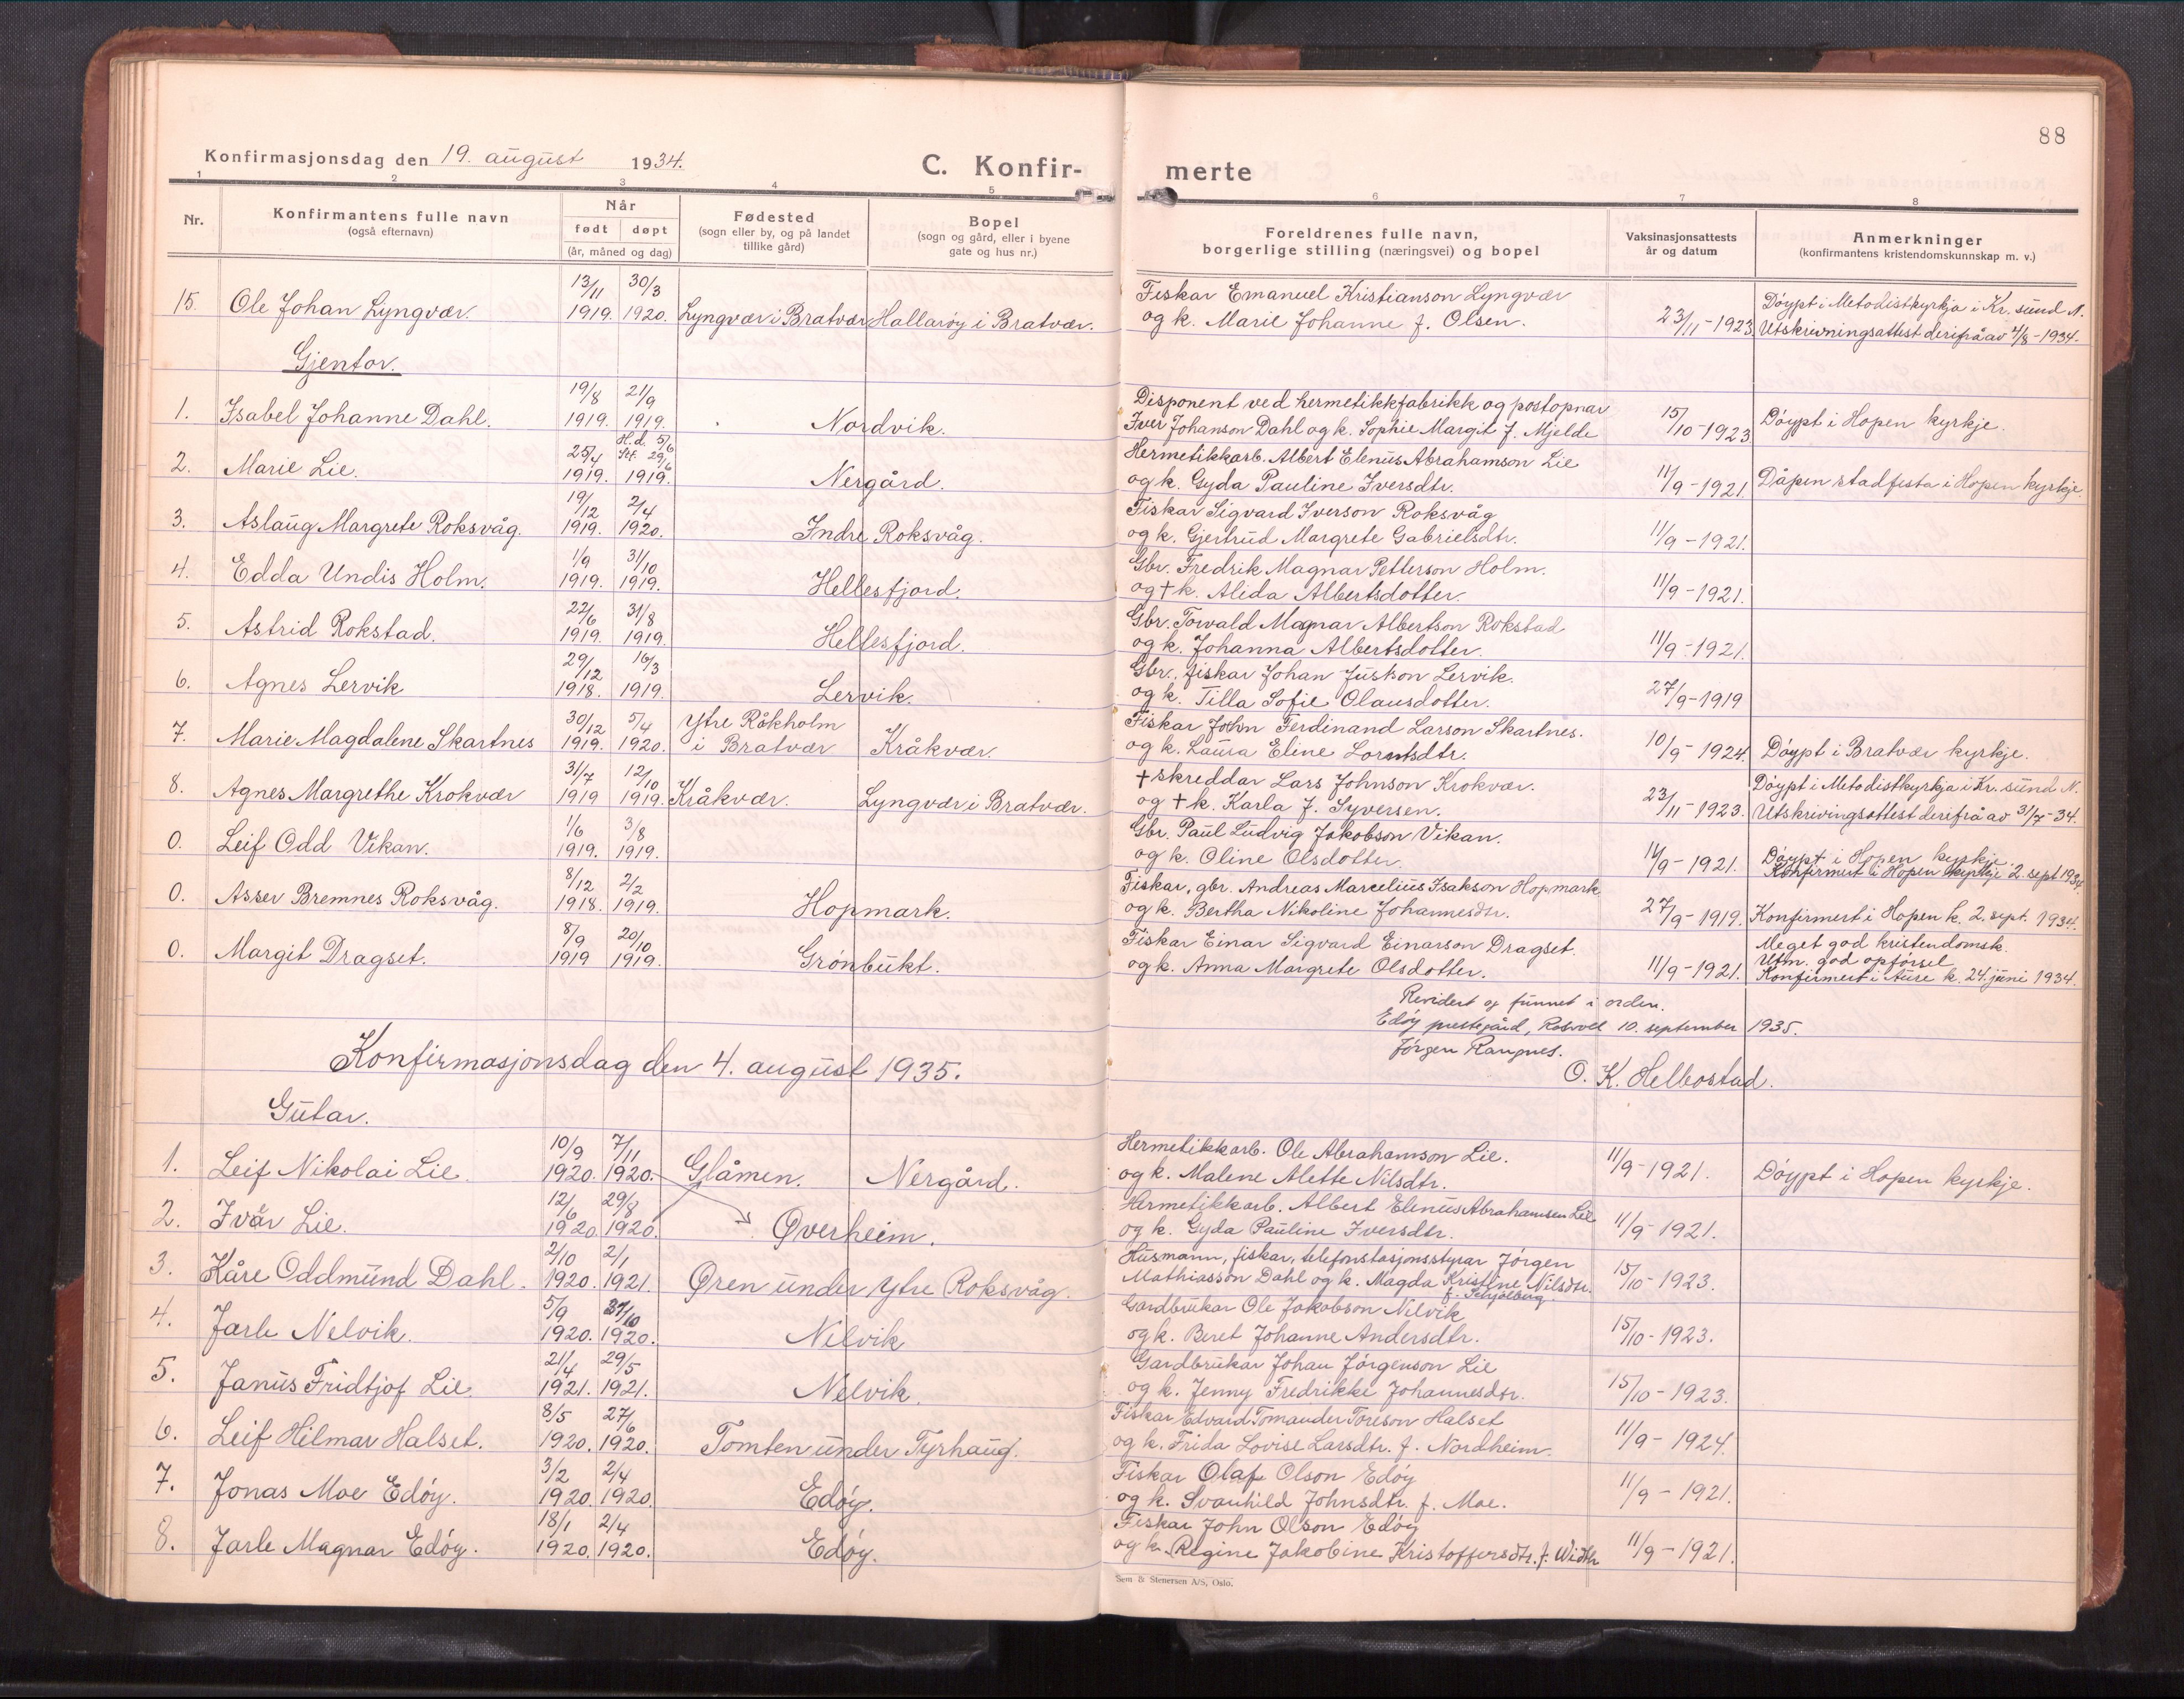 88
Konfirmasjonsdag den 19. august 1934.
C. Konfir-
merte
1 2 3 4 5 6 7 8
Nr.
Konfirmantens fulle navn
(også efternavn)
Når
født døpt
(år, måned og dag)
Fødested
(sogn eller by, og på landet
tillike gård)
Bopel
(sogn og gård, eller i byene
gate og hus nr.)
Foreldrenes fulle navn,
borgerlige stilling (næringsvei) og bopel
Vaksinasjonsattests
år og datum
Anmerkninger
(konfirmantens kristendomskunnskap m. v.)
13/11 30/3 Fiskar Emanuel Kristianson Lyngvær Døypt i Metodistkyrkja i Kr. sund N.
15. Ole Johan Lyngvær. 1919. 1920. Lyngvær i Bratvær Hallarøy i Bratvær. og k. Marie Johanne f. Olsen. 23/11-1923 Utskrivningsattest derifrå av 4/8-1934.
Gjentor.
19/8 21/9 Disponent ved hermetikkfabrikk og postopnar
1. Isabel Johanne Dahl. 1919. 1919. Nordvik. Iver Johanson Dahl og k. Sophie Margit f. Mjelde 15/10-1923 Døypt i Hopen kyrkje.
25/4 H.d. 5/6 Stf. 29/6 Hermetikkarb. Albert Elenus Abrahamson Lie
2. Marie Lie. 1919. 1919. Nergård. og k. Gyda Pauline Iversdtr. 11/9-1921. Dåpen stadfesta i Hopen kyrkje.
19/12 2/4 Fiskar Sigvard Iverson Roksvåg
3. Aslaug Margrete Roksvåg. 1919. 1920. Indre Roksvåg. og k. Gjertrud Margrete Gabrielsdtr. 11/9-1921.
1/9 31/10 Gbr. Fredrik Magnar Petterson Holm.
4. Edda Undis Holm. 1919. 1919. Hellesfjord. og † k. Alida Albertsdotter. 11/9-1921.
22/6 31/8 Gbr. Torvald Magnar Albertson Rokstad
5. Astrid Rokstad. 1919. 1919. Hellesfjord. og k. Johanna Albertsdotter. 11/9-1921.
29/12 16/3 Gbr., fiskar Johan Juston Lervik.
6. Agnes Lervik 1918. 1919. Lervik. og k. Tilla Sofie Olausdotter. 27/9-1919
30/12 5/4 Ytre Råkholm Fiskar John Ferdinand Larson Skartnes.
7. Marie Magdalene Skartnes 1919. 1920. i Bratvær Kråkvær. og k. Laura Eline Lorntsdtr. 10/9-1924. Døypt i Bratvær kyrkje.
31/7 12/10 † skreddar Lars Johnson Krokvær. Døypt i Metodistkyrkja i Kr. sund N.
8. Agnes Margrethe Krokvær 1919 1919. Kråkvær. Lyngvær i Bratvær. og † k. Karla f. Syversen. 23/11-1923. Utskrivingsattest derifrå av 31/7-34.
1/6 3/8 Gbr. Paul Ludvig Jakobson Vikan.
0. Leif Odd Vikan. 1919. 1919. og k. Oline Olsdotter. 11/9-1921. Døypt i Hopen kyrkje.
Konfirmert i Hopen kyrkje 2. sept 1934.
8/12 2/2 Fiskar, gbr. Andreas Marcelius Isakson Hopmark
0. Asser Bremnes Roksvåg. 1918. 1919. Hopmark. og k. Bertha Nikoline Johannesdtr. 27/9-1919. Konfirmert i Hopen k. 2. sept. 1934.
8/9 20/10 Fiskar Einar Sigvard Einarson Dragset. Meget god kristendomsk.
Utm. god opførsel
0. Margit Dragset. 1919 1919. Grønbukt. og k. Anna Margrete Olsdotter. 11/9-1921. Konfirmert i Aure k. 24. juni 1934.
Revidert og funnet i orden.
Edøy prestegård, Rosvoll 10. september 1935.
Jørgen Raugnes.
O. K. Helbostad.
Konfirmasjonsdag den 4. august 1935.
Gutar.
10/9 7/11 Hermetikkarb. Ole Abrahamson Lie.
1. Leif Nikolai Lie. 1920. 1920. Glåmen. Nergård. og k. Malene Alette Nilsdtr. 11/9-1921. Døypt i Hopen kyrkje.
12/6 29/8 Hermetikkarb. Albert Elenus Abrahamsen Lie
2. Ivar Lie. 1920. 1920. Øverheim. og k. Gyda Pauline Iversdtr. 11/9-1921.
2/10 2/1 Husmann, fiskar, telefonstasjonsstyrar Jørgen
3. Kåre Oddmund Dahl. 1920. 1921. Øren under Ytre Roksvåg. Mathiasson Dahl og k. Magda Kristine Nilsdtr. 15/10-1923.
5/9 31/10 Gardbrukar Ole Jakobson Nelvik
4. Jarle Nelvik. 1920. 1920. Nelvik og k. Beret Johanne Andersdtr. 15/10-1923.
21/4 29/5 Gardbrukar Johan Jørgenson Lie
5. Janus Fridtjof Lie 1921. 1921. Nelvik. og k. Jenny Fredrikke Johannesdtr. 15/10-1923.
8/5 27/6 Fiskar Edvard Tomander Toreson Halset
6. Leif Hilmar Halset. 1920. 1920. Tomten under Tyrhaug. og k. Frida Lovise Larsdtr. f. Nordheim. 11/9-1924.
3/2 2/4 Fiskar Olaf Olson Edøy
7. Jonas Moe Edøy. 1920. 1920. Edøy. og k. Svanhild Johnsdtr. f. Moe. 11/9-1921.
18/1 2/4 Fiskar John Olson Edøy
8. Jarle Magnar Edøy. 1920. 1920. Edøy. og k. Regine Jakobine Kristoffersdtr. f. 11/9-1921.
Sem & Stenersen A/S, Oslo.